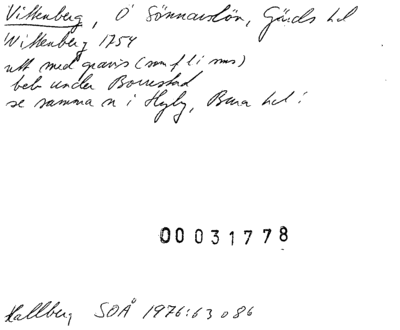 Vittenberg, Ö Sönnarslöv, Gärds hd
Wittenberg 1754
utt med gravis (
beb under Borrestad
se samma n i Hyby, Bara hd!
00031778
Hallberg SOÅ 1976:63 o 86